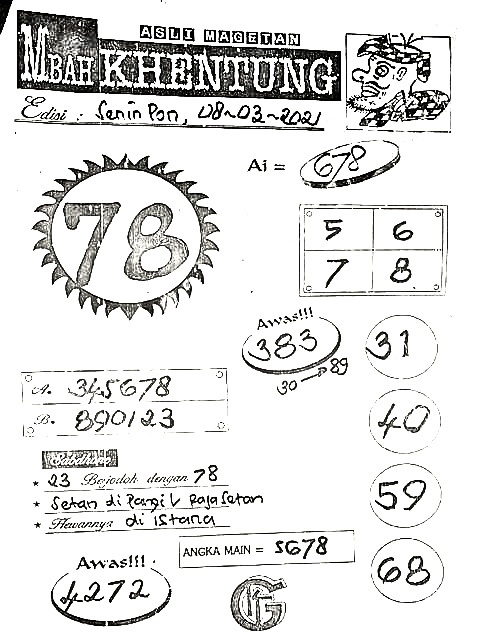 ASLI MAGETAN
MBAH KHENTUNG
Edisi : Senin Pon, 08-03-2021
Ai = 678
78
5 6
7 8
Awas!!!
383
30 → 89
31
40
59
68
A. 345678
B. 890123
* 23 Berjodoh dengan 78
* Setan di Pangil Raja Setan
* Hewannya di istana
ANGKA MAIN = 5678
Awas!!!
4272